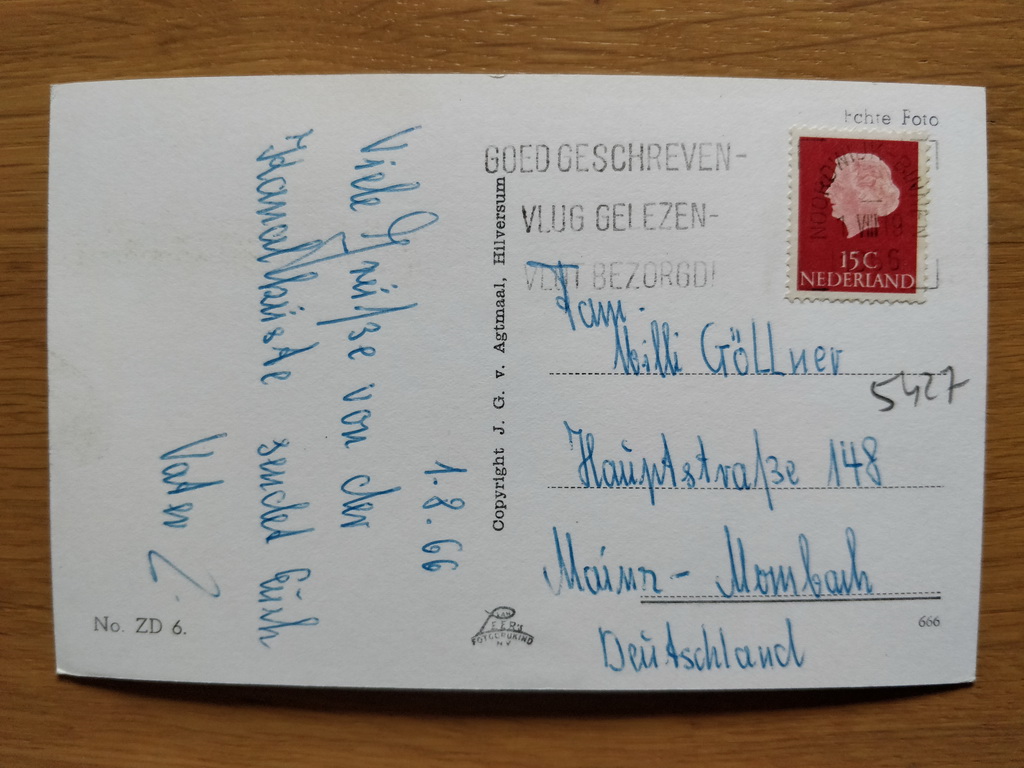 1.8.66
Viele Grüße von der
Kanalküste sendet Euch
Vater
No. ZD 6.
Copyright J. G. v. Agtmaal, Hilversum
VAN LEER's
FOTODRUKIND
N V
Echte Foto
GOED GESCHREVEN-
VLUG GELEZEN-
VLUT BEZORGD!
15C
NEDERLAND
VIII 19
Fam.
Willi GÖLLner
5427
Hauptstraße 148
Mainz - Mombach
Deutschland
666